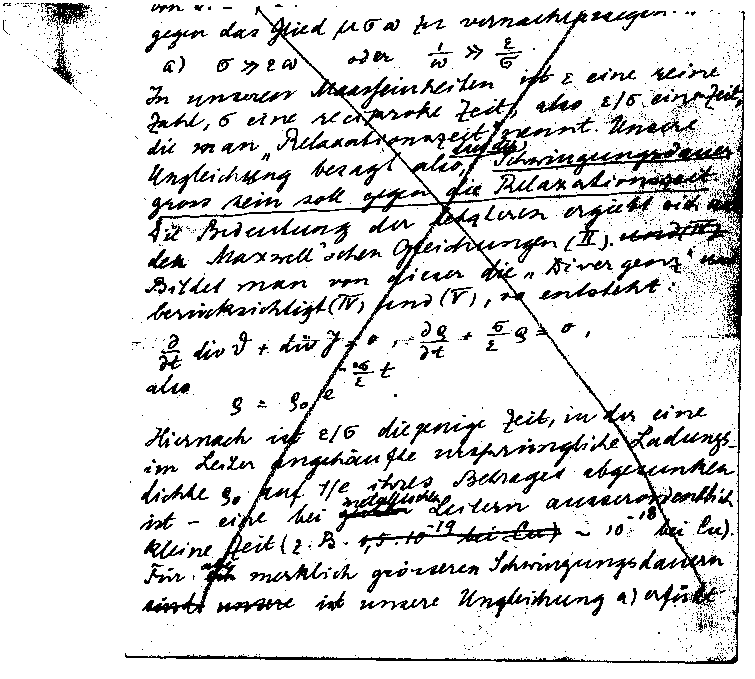 gegen das Glied μσω zu vernachlässigen...
a) σ ≫ εω oder 1/ω ≫ ε/σ.
In unseren Masseinheiten ist ε eine reine
Zahl, σ eine reciproke Zeit, also ε/σ eine Zeit,
die man „Relaxationszeit" nennt. Unsere
Ungleichung besagt also, dass die Schwingungsdauer
gross sein soll gegen die Relaxationszeit
Die Bedeutung der letzteren ergiebt sich aus
den Maxwell'schen Gleichungen (II). und (IV)
Bildet man von dieser die „Divergenz" und
berücksichtigt (IV) und (V), so entsteht:
∂/∂t div ϑ + div J = 0, ∂ρ/∂t + σ/ε ρ = 0,
also
ρ = ρ₀ e^{-σ/ε t}
Hiernach ist ε/σ diejenige Zeit, in der eine
im Leiter angehäufte ursprüngliche Ladungs-
dichte ρ₀ auf 1/e ihres Betrages abgesunken
ist – eine bei metallischen Leitern ausserordentlich
kleine Zeit (z. B. 1,5·10⁻¹⁹ bei Cu) ~ 10⁻¹⁸ bei Cu).
Für merklich grösseren Schwingungsdauern
unsere ist unsere Ungleichung a) erfüllt